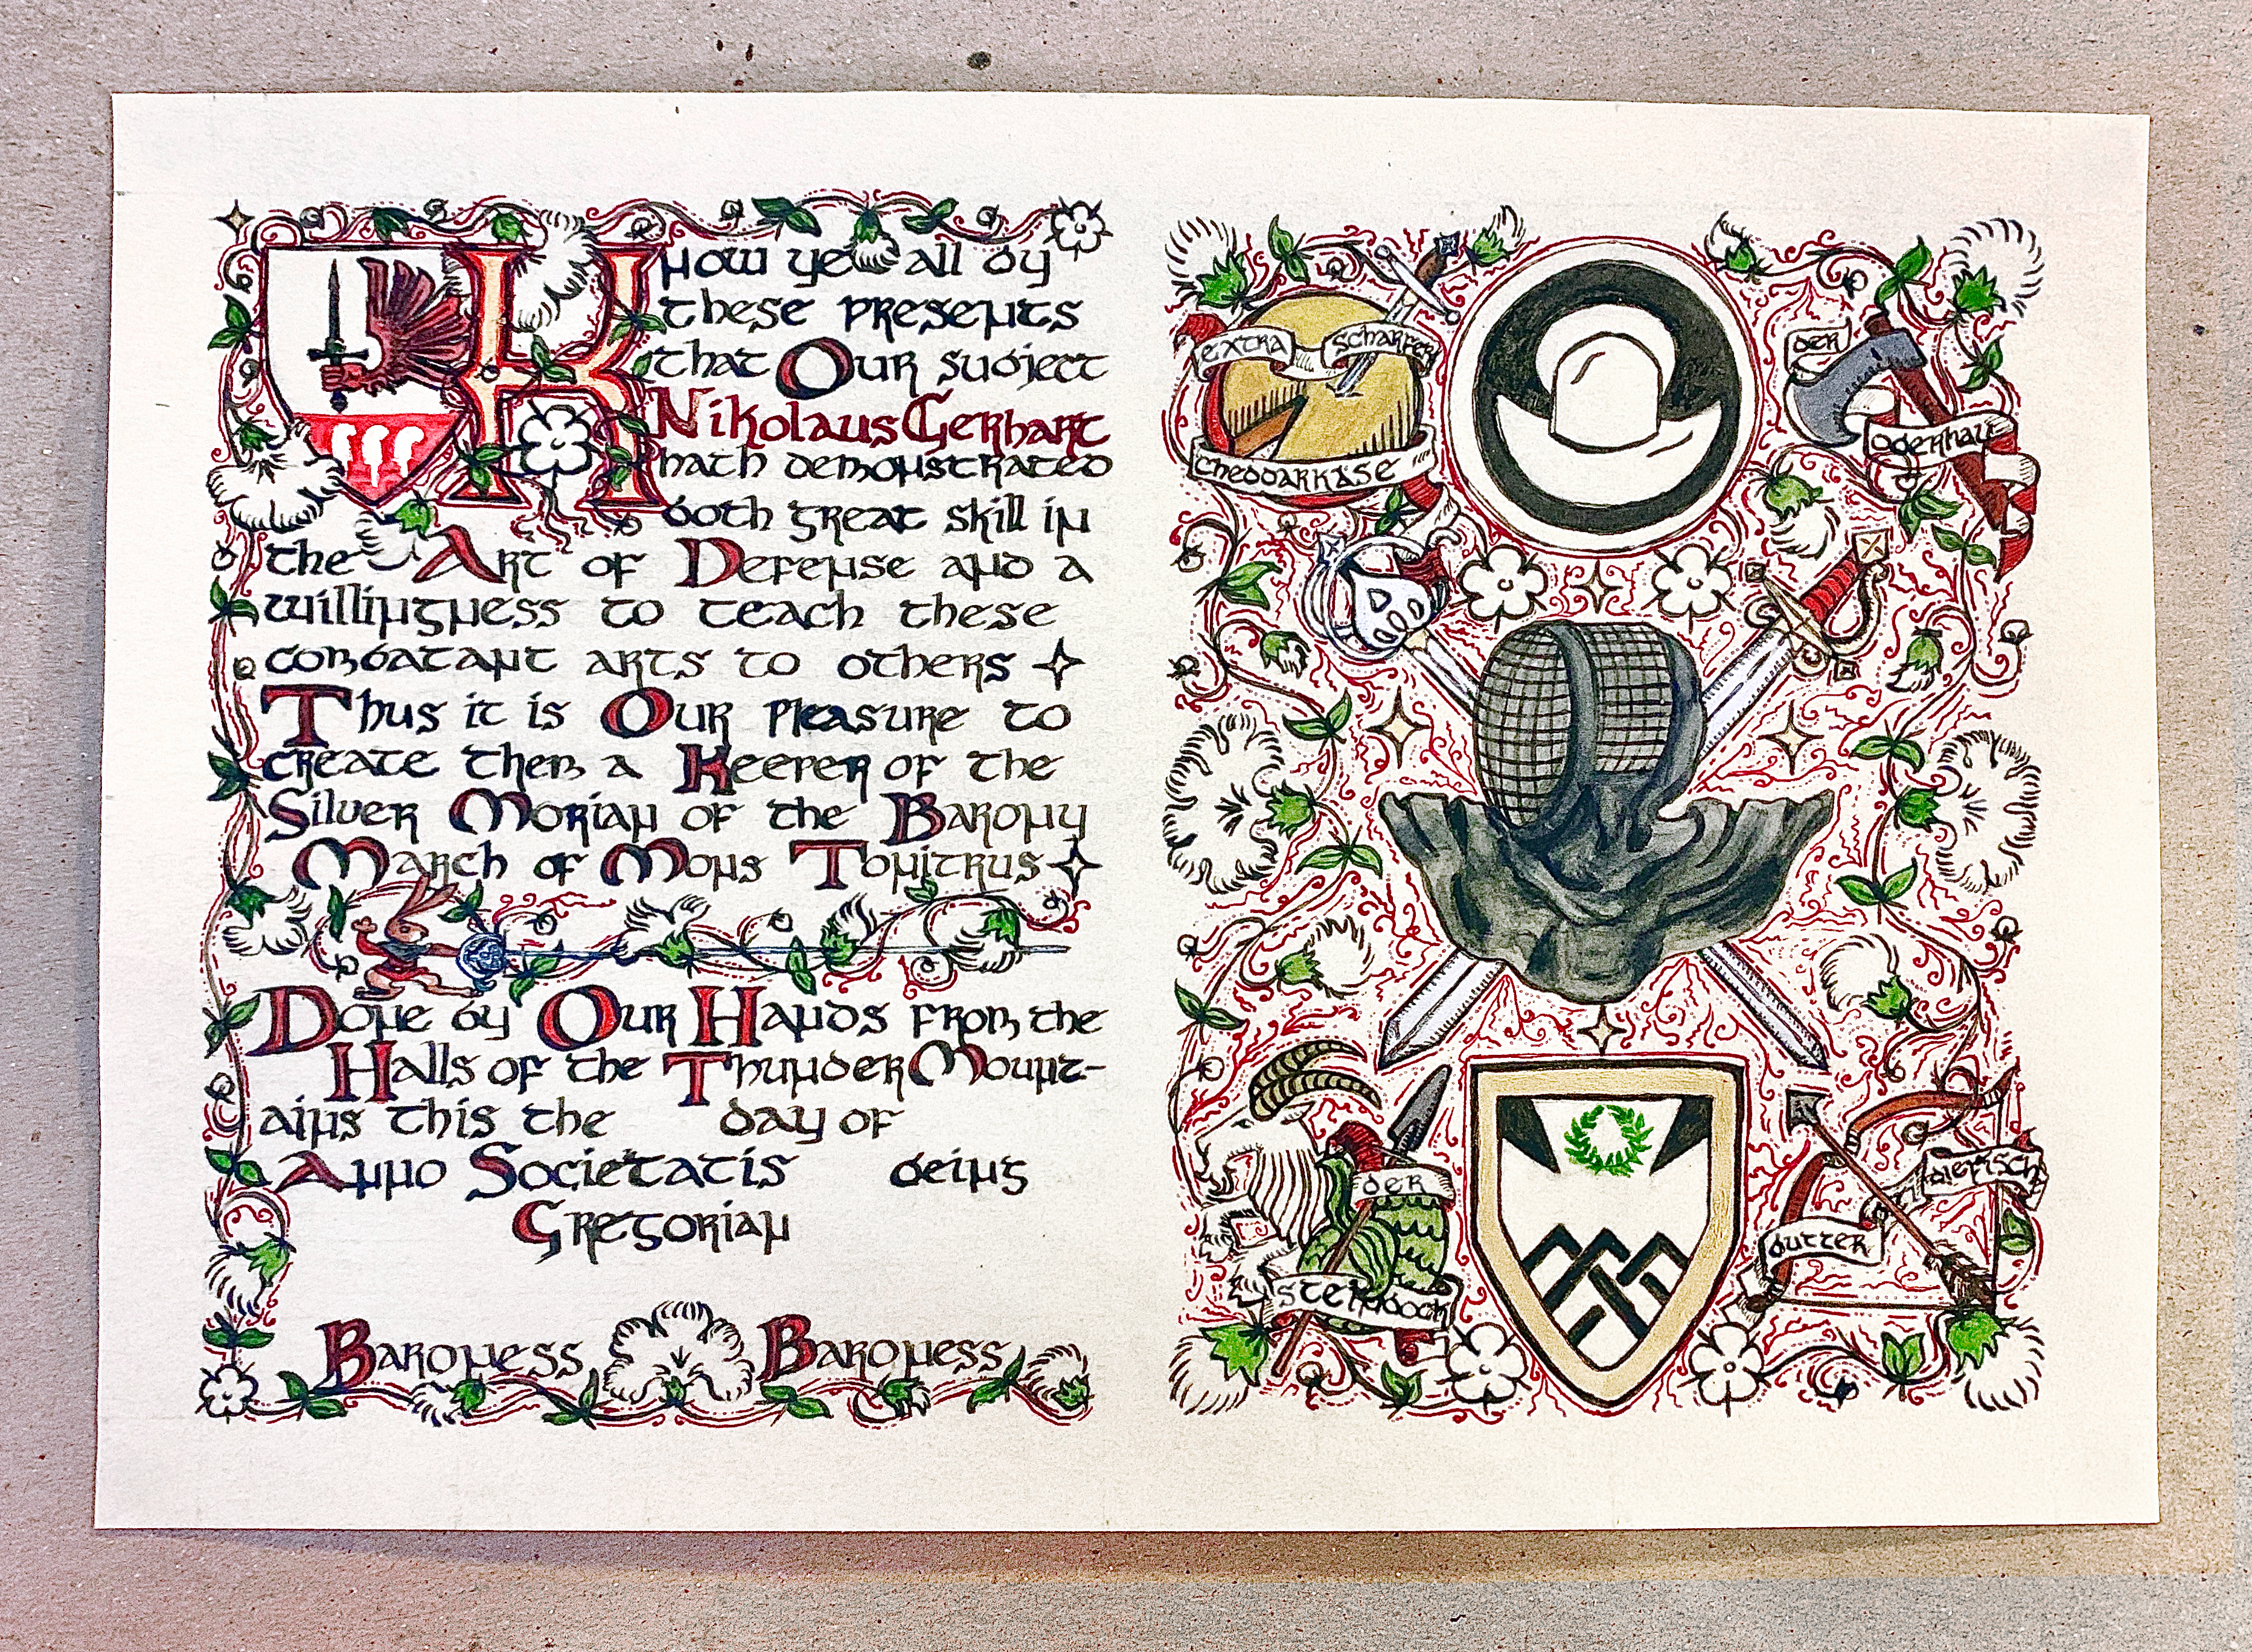 Know ye all by
these presents
that Our subject
Nikolaus Gerhart
hath demonstrated
both great skill in
the Art of Defense and a
willingness to teach these
combatant arts to others
Thus it is Our Pleasure to
create them a Keeper of the
Silver Morian of the Barony
March of Mons Tonitrus
Done by Our Hands from the
Halls of the Thunder Mount-
ains this the day of
Anno Societatis being
Gregorian
Baroness Baroness
extra scharfer
cheddarkäse
der
ogerhau
der
steinbock
diefisch
butter